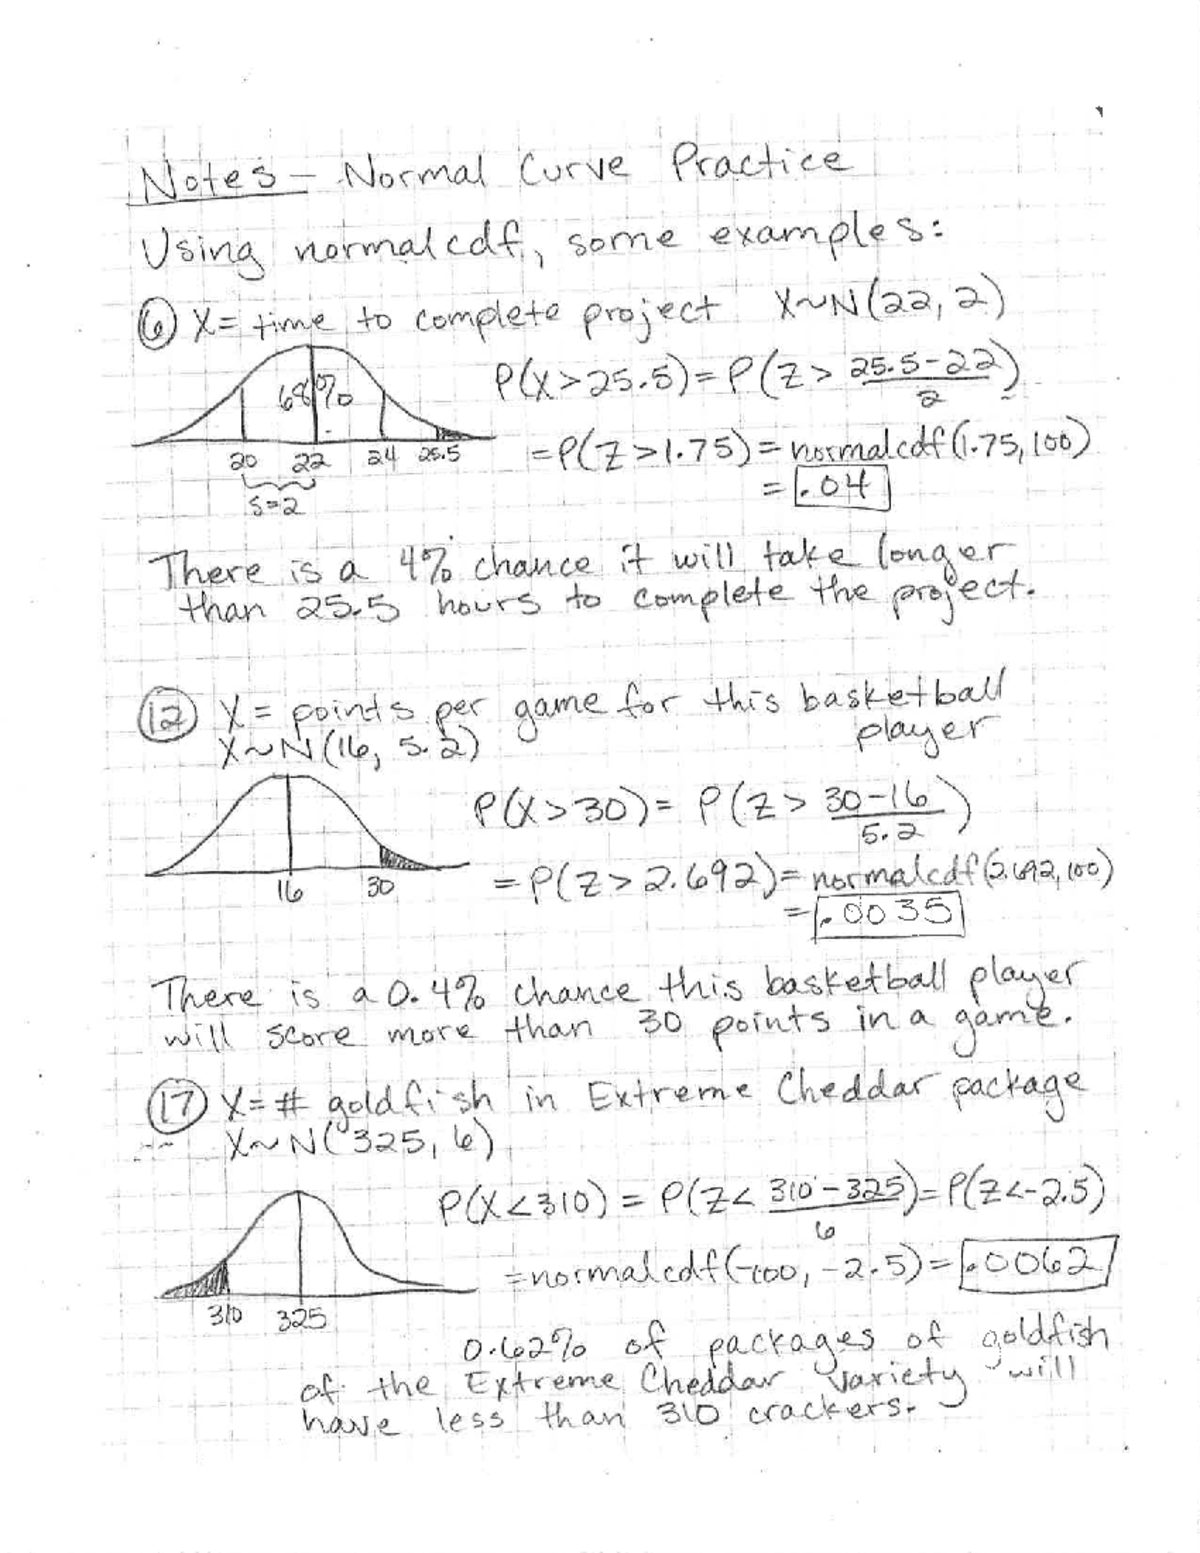 Notes - Normal Curve Practice
Using normalcdf, some examples:
⑥ X = time to complete project X~N(22, 2)
68%
20 22 24 25.5
S=2
P(X>25.5) = P(Z > 25.5-22 / 2)
= P(Z>1.75) = normalcdf(1.75, 100)
= .04
There is a 4% chance it will take longer
than 25.5 hours to complete the project.
⑫ X = points per game for this basketball
player
X~N(16, 5.2)
16 30
P(X>30) = P(Z > 30-16 / 5.2)
= P(Z > 2.692) = normalcdf(2.692, 100)
= .0035
There is a 0.4% chance this basketball player
will score more than 30 points in a game.
⑰ X = # goldfish in Extreme Cheddar package
X~N(325, 6)
310 325
P(X<310) = P(Z< 310-325 / 6) = P(Z<-2.5)
= normalcdf(-100, -2.5) = .0062
0.62% of packages of goldfish
of the Extreme Cheddar variety will
have less than 310 crackers.